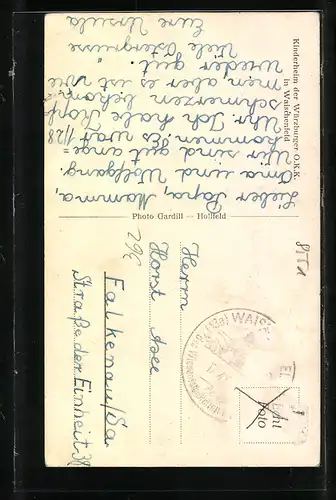 Kinderheim der Würzburger O.K.K.
in Waischenfeld
Lieber Papa, Mamma,
Oma und Wolfgang.
Wir sind gut ange-
kommen. Es war 1/28
Uhr. Ich habe Kopf
schmerzen bekom
men aber es ist
wieder gut.
Viele Ostergrüsse
Eure Ursula
Photo Gardill — Hollfeld
Herrn
Horst
Falkenau/Sa
Straße der Einheit 38
(13a) WAISC
Foto